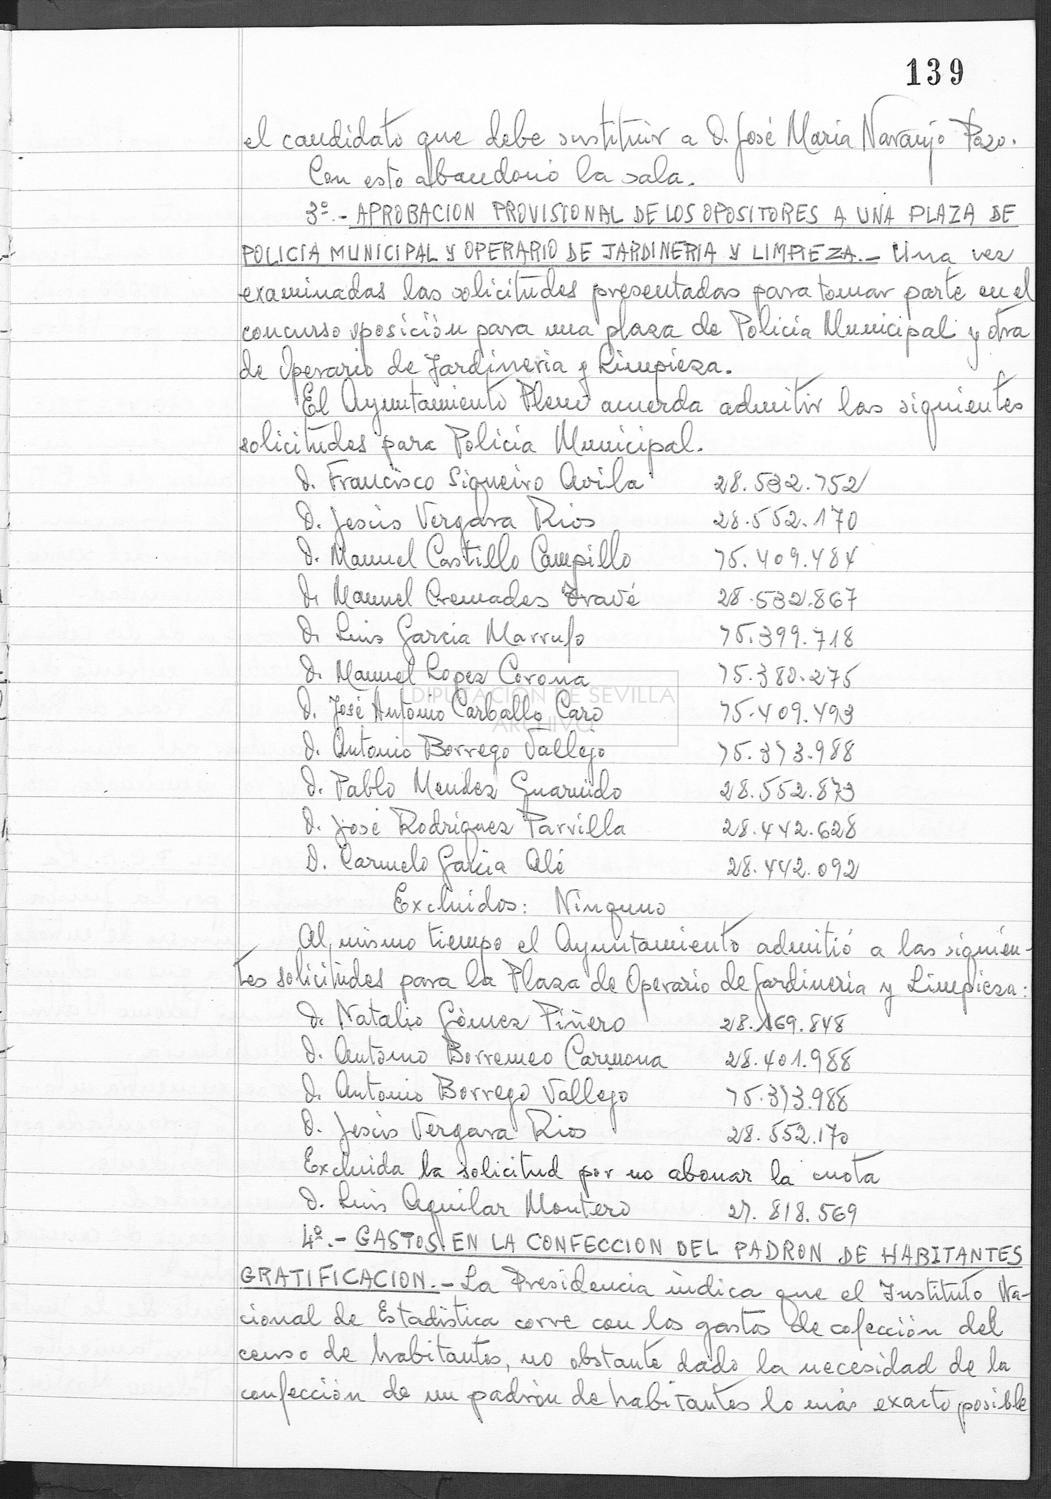 139
el candidato que debe sustituir a D. José Maria Naranjo Pazo.
Con esto abandonó la sala.
3º.- APROBACION PROVISIONAL DE LOS OPOSITORES A UNA PLAZA DE
POLICIA MUNICIPAL Y OPERARIO DE JARDINERIA Y LIMPIEZA.- Una vez
examinadas las solicitudes presentadas para tomar parte en el
concurso oposición para una plaza de Policia Municipal y otra
de Operario de Jardineria y Limpieza.
El Ayuntamiento Pleno acuerda admitir las siguientes
solicitudes para Policia Municipal.
D. Francisco Siqueiro Avila 28.532.752
D. Jesús Vergara Rios 28.552.170
D. Manuel Castillo Campillo 75.409.484
D. Manuel Cremades Travé 28.532.867
D. Luis Garcia Marrufo 75.399.718
D. Manuel Lopez Corona 75.380.275
DIPUTACIÓN DE SEVILLA
ARCHIVO
D. José Antonio Carballo Caro 75.409.493
D. Antonio Borrego Vallejo 75.373.988
D. Pablo Mendez Guarnido 28.552.873
D. José Rodriguez Parvilla 28.442.628
D. Carmelo Garcia Alé 28.442.092
Excluidos: Ninguno
Al mismo tiempo el Ayuntamiento admitió a las siguien-
tes solicitudes para la Plaza de Operario de Jardineria y Limpieza:
D. Natalio Gómez Piñero 28.169.848
D. Antonio Borremeo Carmona 28.401.988
D. Antonio Borrego Vallejo 75.373.988
D. Jesús Vergara Rios 28.552.170
Excluida la solicitud por no abonar la cuota
D. Luis Aguilar Montero 27.818.569
4º.- GASTOS EN LA CONFECCION DEL PADRON DE HABITANTES
GRATIFICACION.- La Presidencia indica que el Instituto Na-
cional de Estadistica corre con los gastos de cofección del
censo de habitantes, no obstante dado la necesidad de la
confección de un padrón de habitantes lo más exacto posible